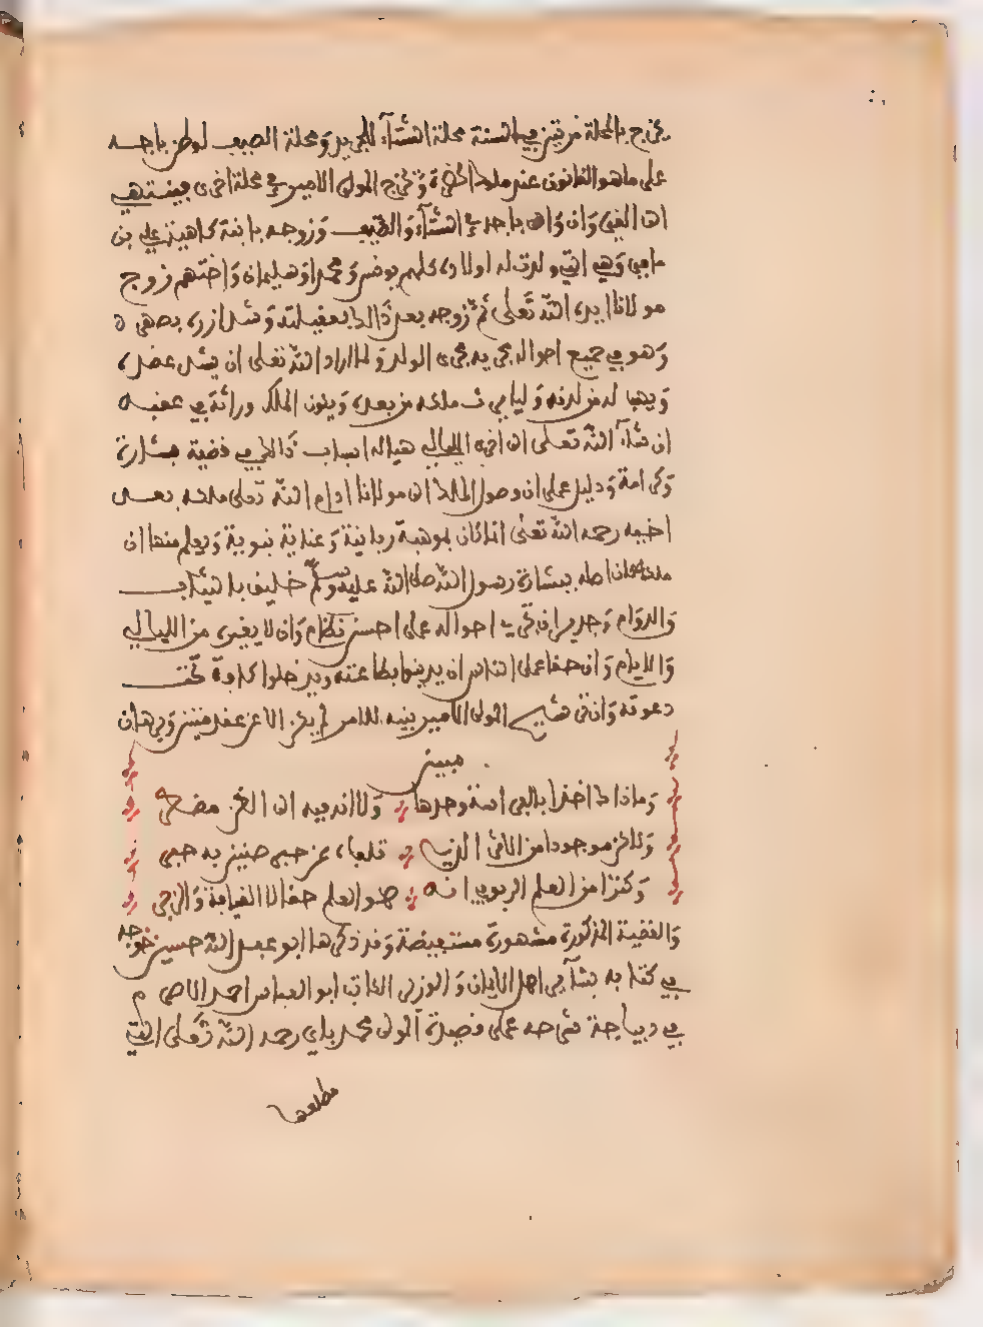 يخرج بالمحلة مرتين في السنة محلة الشتآء للجريد ومحلة الصيف لوطن باجه
على ما هو القانون عند ملوك الحضرة ويخرج المولى الامير في محلة اخرى
ان الغى وان باجه في الشتآء والصيف وزوجه بابنة كاهيته علي بن
مامي وهي التي ولدت له اولاده كلهم يونس ومحمدا وسليمان واختهم زوج
مولانا ايده الله تعلى ثم زوجه بعد ذالك بعقيلته وشد ازره بصهره
وهو في جميع احواله يجريه مجرى الولد ولما اراد الله تعلى ان يشد عضده
ويهب له من لدنه وليا يرث ملكه من بعده ويكون الملك وراثة في عقبه
ان شآء الله تعلى الى اخر الليالي هيا له اسباب ذالك في قضية بشارة
وكرامة ودليل على ان وصول الملك الى مولانا ادام الله تعلى ملكه بعد
اخيه رحمه الله تعلى انما كان بموهبة ربانية وعناية نبوية ويعلم منها ان
ملكا كان اصله ببشارة رسول الله صلى الله عليه وسلم خليق بالثبات
والدوام وجدير ان تجرى احواله على احسن نظام وان لا يغيره مر الليالي
والايام وان حقا على الناس ان يدينوا بطاعته ويدخلوا كافة تحت
دعوته وان ترشيح المولى الامير بنيه للامر لم يكن الا عن عقد متين وبرهان
مبين
وما ذاك اخذا بالفراسة وحدها ولا انه فيه ان الغر
ولاكن موجودا من الاثر الذي تلقاه عن حبر ضنين به حبر
وكنزا من العلم الربوبي انه هو العلم حقا لا القيافة والزجر
والقضية المذكورة مشهورة مستفيضة وقد ذكرها ابو عبد الله حسين خوجه
في كتابه بشآئر اهل الايمان والوزير الكاتب ابو العباس احمد الاصرم
في ديباجة شرحه على قصيدة المولى محمد باي رحمه الله تعلى التي
مطلعها